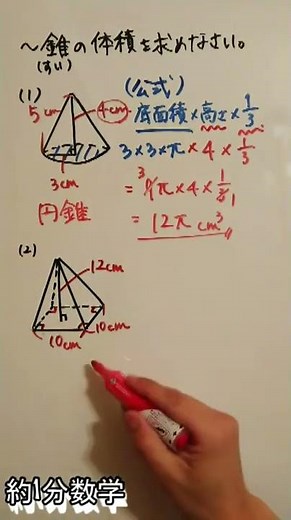 ~錐の体積を求めなさい。
(すい)
(1)
(公式)
5cm
4cm
底面積×高さ×1/3
3×3×π×4×1/3
3cm
= 3 9π×4×1/3 1
円錐
= 12π cm³
(2)
12cm
10cm
10cm
約1分数学